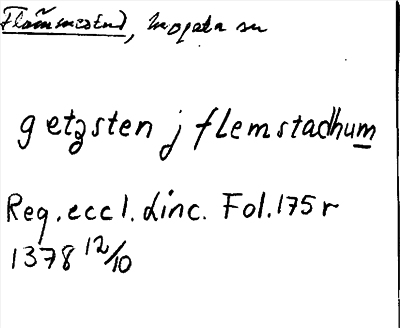 Flämmestad, Mojeta sn
getzsten j flemstadhum
Reg. eccl. Linc. Fol. 175 r
1378 12/10